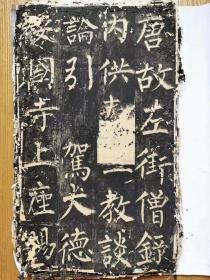 唐故左街僧錄
內供三教談
論引駕大德
安國寺上座賜